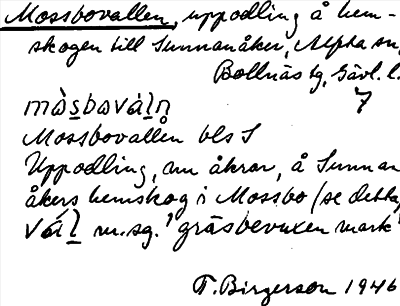 Mossbovallen, uppodling å hem-
skogen till Sunnanåker, Alfta sn,
Bollnäs tg, Gävl. l.
7
mòs̲bωvál̲n̥
Mossbovallen bls S
Uppodling, nu åkrar, å Sunnan
åkers hemskog i Mossbo (se detta)
vál̲ m.sg. 'gräsbevuxen mark'
T. Birgerson 1946